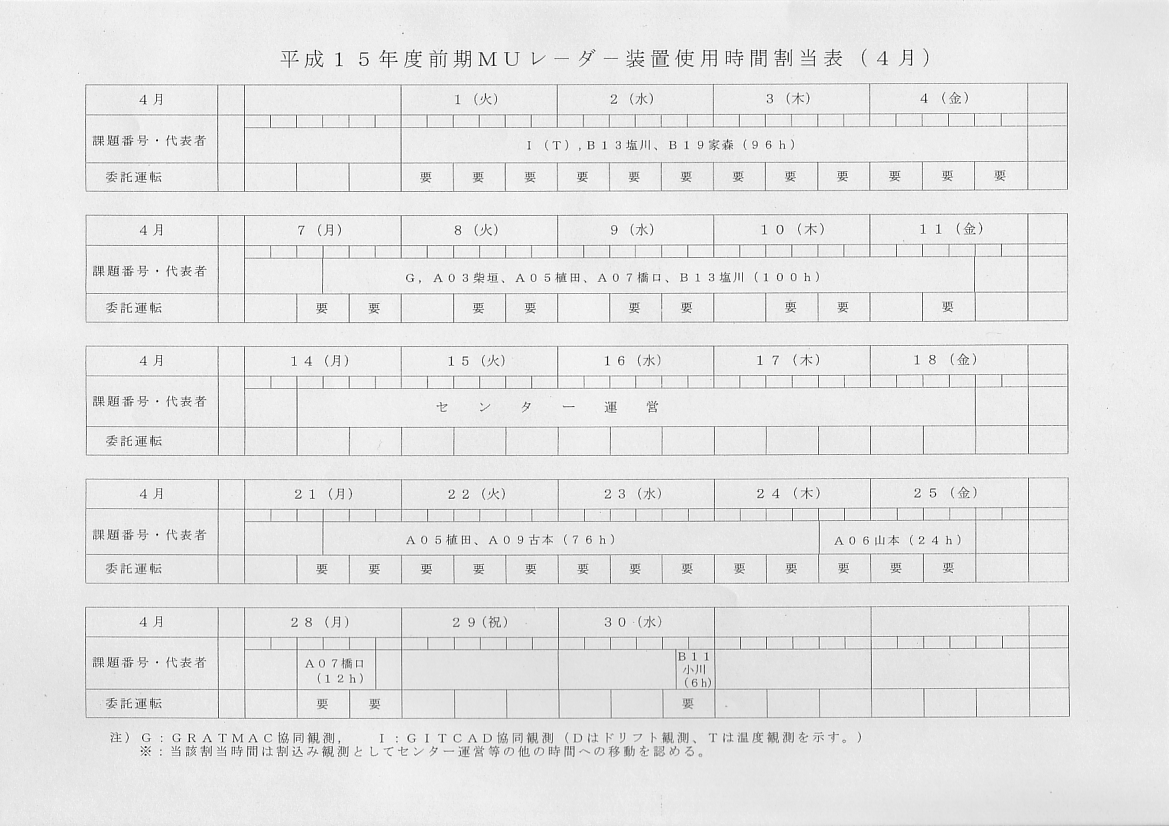 平成１５年度前期ＭＵレーダー装置使用時間割当表（４月）
４月 １（火） ２（水） ３（木） ４（金）
課題番号・代表者 Ｉ（Ｔ）,Ｂ１３塩川、Ｂ１９家森（９６ｈ）
委託運転 要 要 要 要 要 要 要 要 要 要 要 要
４月 ７（月） ８（火） ９（水） １０（木） １１（金）
課題番号・代表者 Ｇ，Ａ０３柴垣、Ａ０５植田、Ａ０７橋口、Ｂ１３塩川（１００ｈ）
委託運転 要 要 要 要 要 要 要 要 要
４月 １４（月） １５（火） １６（水） １７（木） １８（金）
課題番号・代表者 センター運営
委託運転
４月 ２１（月） ２２（火） ２３（水） ２４（木） ２５（金）
課題番号・代表者 Ａ０５植田、Ａ０９古本（７６ｈ） Ａ０６山本（２４ｈ）
委託運転 要 要 要 要 要 要 要 要 要 要 要 要 要
４月 ２８（月） ２９（祝） ３０（水）
課題番号・代表者 Ａ０７橋口
（１２ｈ）
Ｂ１１
小川
（６ｈ）
委託運転 要 要 要
注）Ｇ：ＧＲＡＴＭＡＣ協同観測， Ｉ：ＧＩＴＣＡＤ協同観測（Ｄはドリフト観測、Ｔは温度観測を示す。）
※：当該割当時間は割込み観測としてセンター運営等の他の時間への移動を認める。